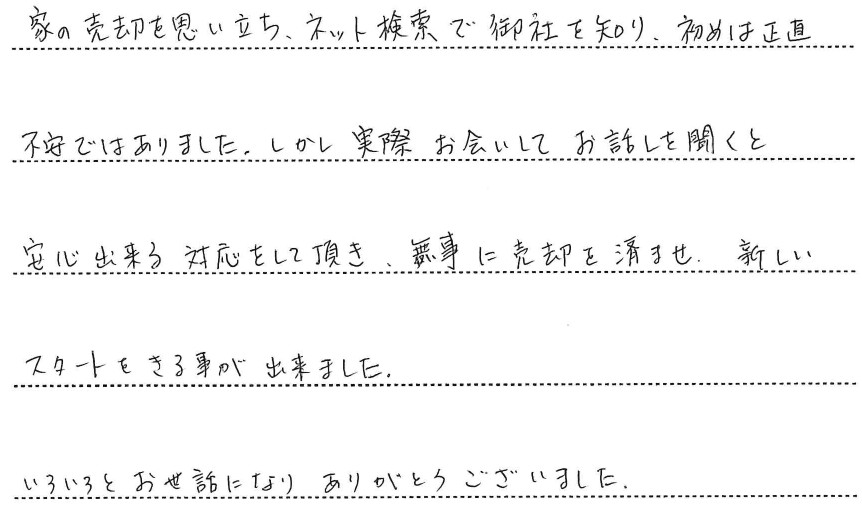 家の売却を思い立ち、ネット検索で御社を知り、初めは正直
不安ではありました。しかし実際お会いしてお話しを聞くと
安心出来る対応をして頂き、無事に売却を済ませ、新しい
スタートをきる事が出来ました。
いろいろとお世話になりありがとうございました。